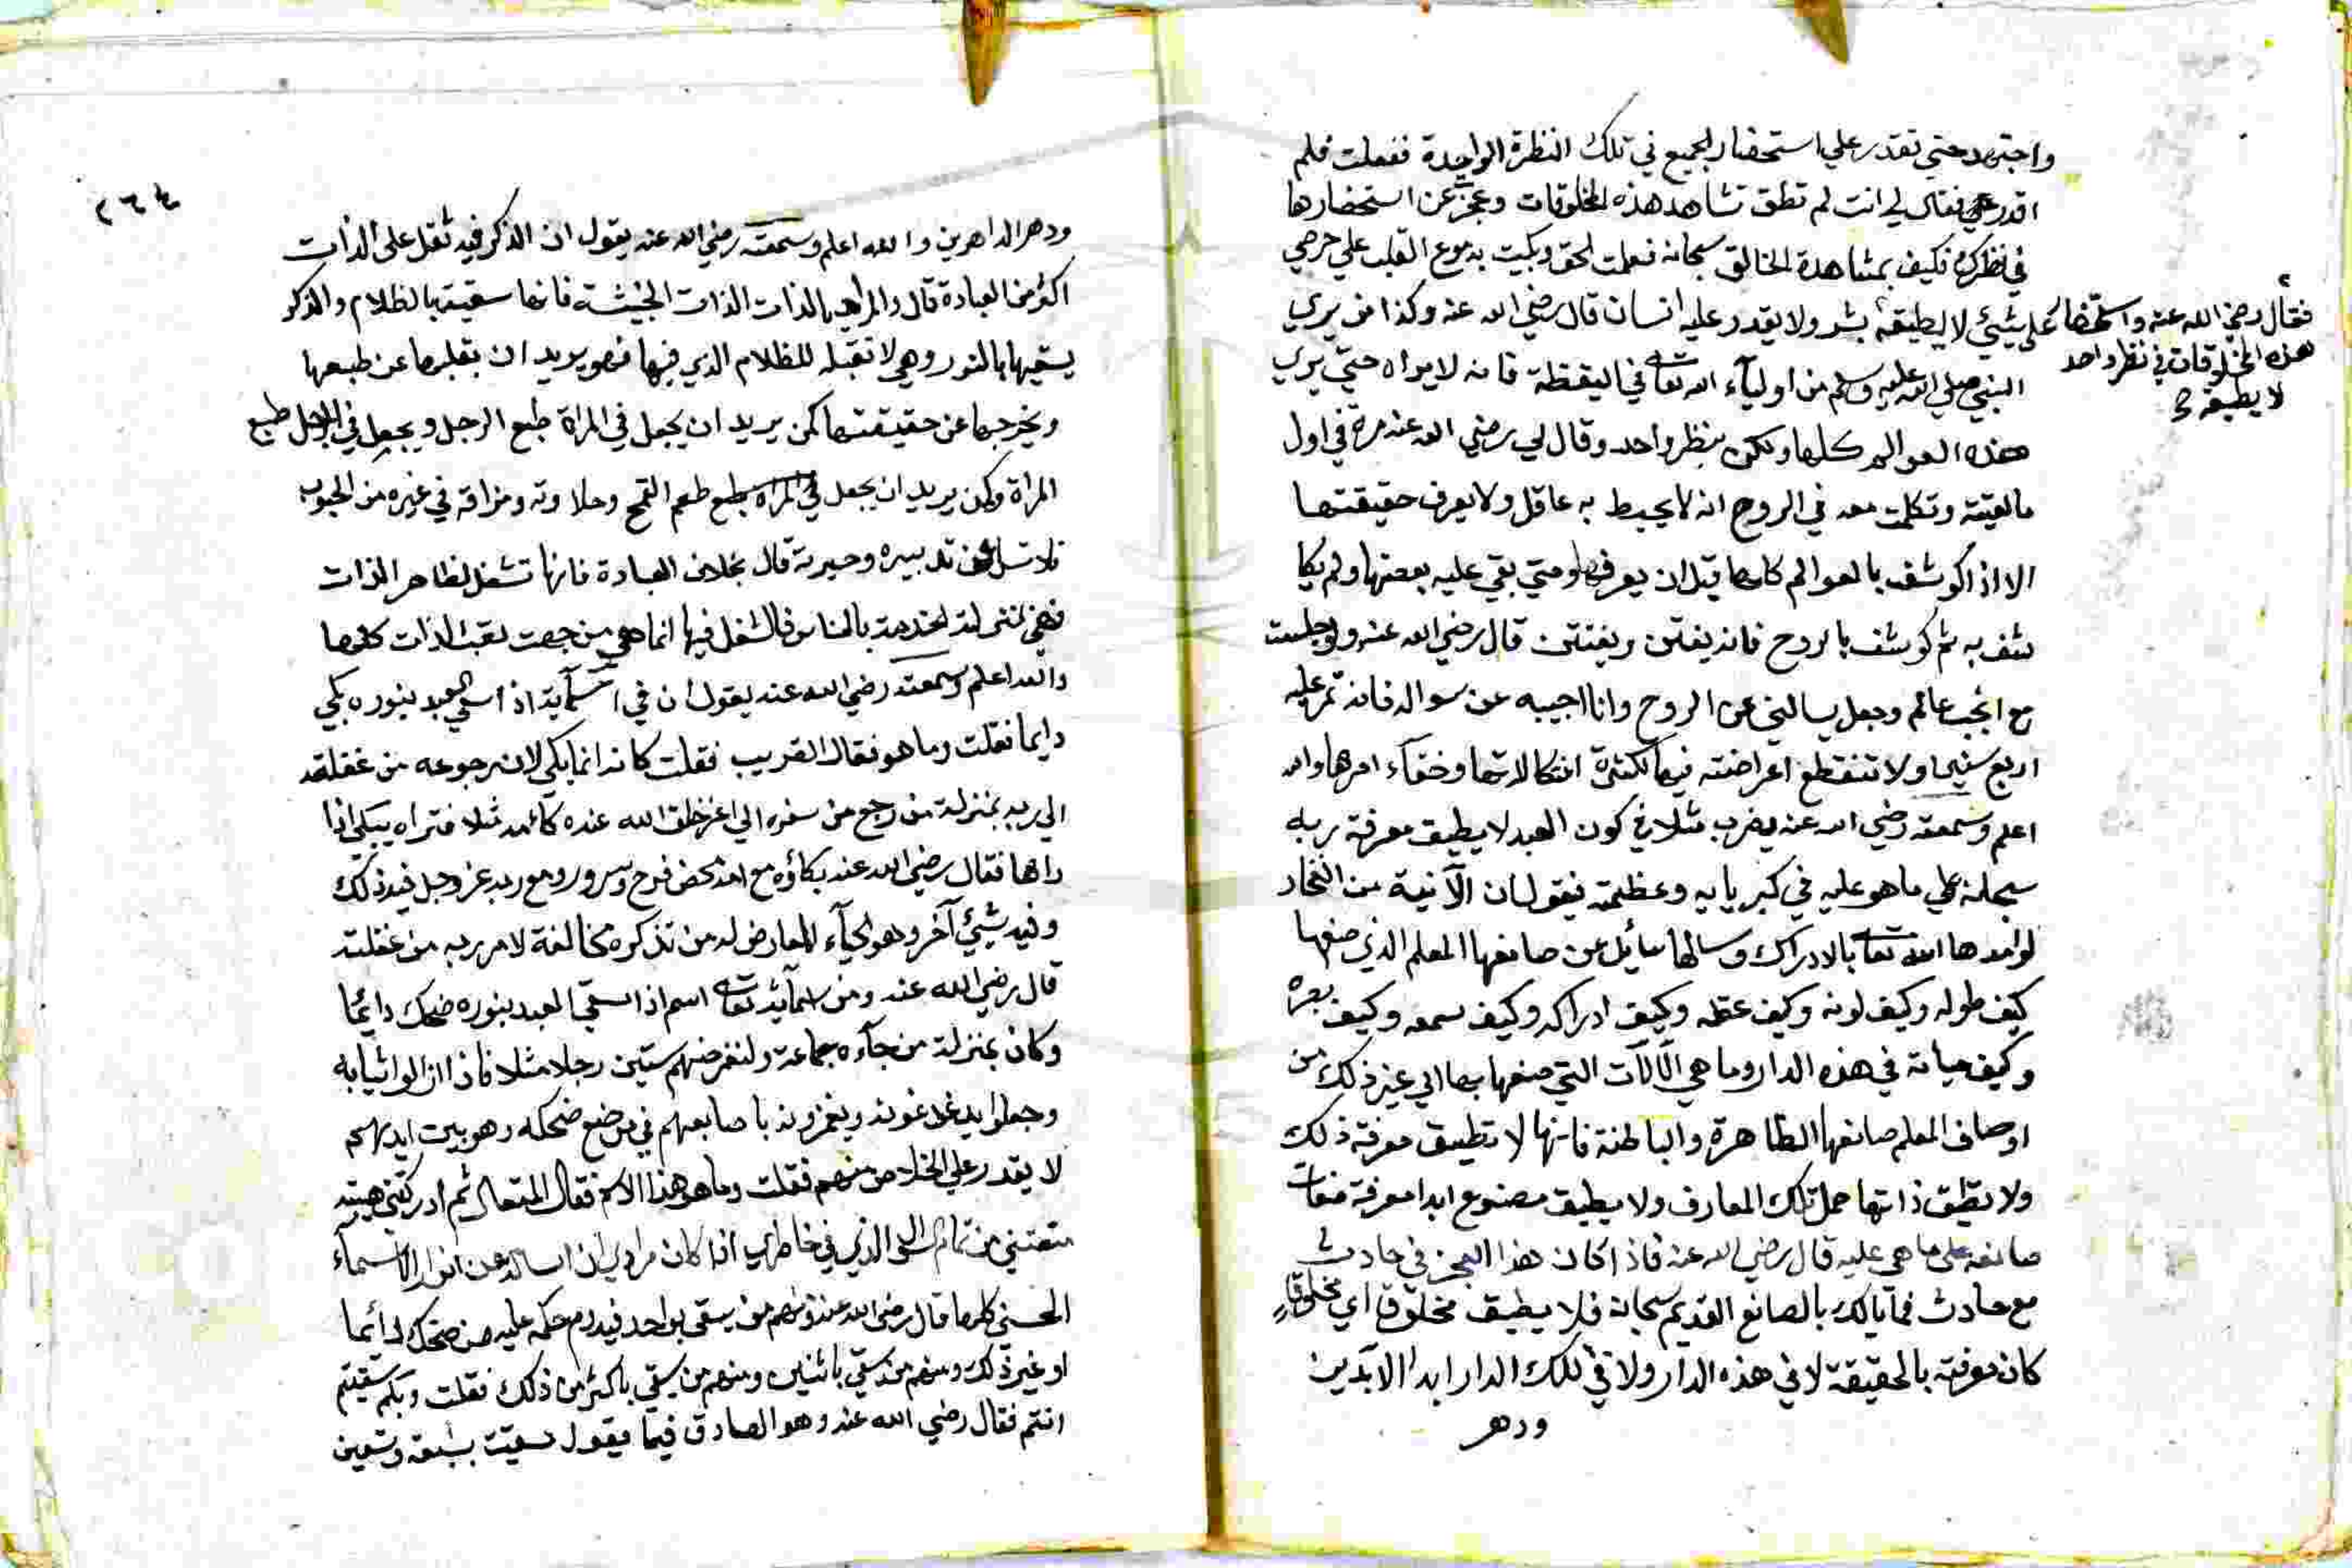 واجتهد حتي تقدر علي استحضار الجميع في تلك النظرة الواحدة ففعلت فلم
اقدر علي فقال لي انت لم تطق تشاهد هذه المخلوقات وعجزت عن استحضارها
في نظرك فكيف بمشاهدة الخالق سبحانه فعلمت الحق وبكيت بدموع القلب علي حرصي
علي شيئ لا يطيقه بشر ولا يقدر عليه انسان قال رضي الله عنه وكذا من يري
فقال رضي الله عنه واستحضار
هذه المخلوقات في نظر واحد
لا يطيقه
النبي صلي الله عليه وسلم من اوليآء الله تعالى في اليقظة فانه لا يراه حتي يري
هذه العوالم كلها ولكن بنظر واحد وقال لي رضي الله عنه مرة في اول
مالقيته وتكلمت معه في الروح انه لا يحيط به عاقل ولا يعرف حقيقتها
الا اذا كوشف بالعوالم كلها قبل ان يعرفها ومتي بقي عليه بعضها ولم يكا
شف به ثم كوشف بالروح فانه يفتن ويفتتن قال رضي الله عنه ولو جلست
مع انجب عالم وجعل يسالني عن الروح وانا اجيبه عن سواله فانه تمر عليه
اربع سنين ولا تنقطع اعراضته فيها لكثرة اشكالاتها وخفآء امرها والله
اعلم وسمعته رضي الله عنه يضرب مثلا في كون العبد لا يطيق معرفة ربه
سبحانه علي ما هو عليه في كبريايه وعظمته فيقول ان الآنية من الفخار
لو امدها الله تعالى بالادراك وسالها سائل عن صانعها المعلم الذي صنعها
كيف طوله وكيف لونه وكيف عقله وكيف ادراكه وكيف سمعه وكيف بصره
وكيف حياته في هذه الدار وما هي الآلات التي صنعها بها الي غير ذلك من
اوصاف المعلم صانعها الظاهرة والباطنة فانها لا تطيق معرفة ذلك
ولا تطيق ذاتها حمل تلك المعارف ولا يطيق مصنوع ابدا معرفة صفات
صانعه على ما هي عليه قال رضي الله عنه فاذا كان هذا العجز في حادث
مع حادث فما بالك بالصانع القديم سبحانه فلا يطيق مخلوق اي مخلوق
كان معرفته بالحقيقة لا في هذه الدار ولا في تلك الدار ابد الآبدين
ودهر
٢٦٤
ودهر الداهرين والله اعلم وسمعته رضي الله عنه يقول ان الذكر فيه ثقل على الذات
اكثر من العبادة قال والمراد بالذات الذات الخبيثة فانها سقيت بالظلام والذكر
يسقيها بالنور وهي لا تقبله للظلام الذي فيها فهو يريد ان يقلبها عن طبعها
ويخرجها عن حقيقتها كمن يريد ان يجعل في المراة طبع الرجل ويجعل في الرجل طبع
المراة وكمن يريد ان يجعل طعم القمح وحلاوته ومزاقه في غيره من الحبوب
فلا تسل عن تدبيره وحيرته قال بخلاف العبادة فانها تشغل لظاهر الذات
فهي بمنزلة الخدمة بالفاس فالشغل فيها انما هي من جهت تعب الذات كلها
والله اعلم وسمعته رضي الله عنه يقول ان في اسمآيه اذا سقي العبد بنوره بكي
دايما فقلت وما هو فقال القريب فقلت كانه انما يبكي لان رجوعه من غفلته
الي ربه بمنزلة من رجع من سفره الي اعز خلق الله عنده كامه مثلا فتراه يبكي اذا
راها فقال رضي الله عنه بكاؤه مع امه محض فرح وسرور ومع ربه عز وجل فيه ذلك
وفيه شيئ آخر وهو الحيآء العارض له من تذكره مخالفة لامر ربه من غفلته
قال رضي الله عنه ومن اسمآئه تعالى اسم اذا سقي العبد بنوره ضحك دائما
وكان بمنزلة من جآءه جماعة ولنفرضهم ستين رجلا مثلا فاذا ازالوا ثيابه
وجعلوا يدغدغونه ويغمزونه باصابعهم في موضع ضحكه وهو بين ايديهم
لا يقدر علي الخلاص منهم فقلت وما هو هذا الاسم فقال المتعال ثم ادركتني هيبته
منعتني من تمام السؤال الذي في خاطري اذ كان مرادي ان اساله عن انوار الاسمآء
الحسني كلها قال رضي الله عنه ومنهم من يسقي بواحد فيدوم حكمه عليه من ضحك دائما
او غير ذلك ومنهم من يسقي باثنين ومنهم من يسقي باكثر من ذلك فقلت وبكم سقيتم
انتم فقال رضي الله عنه وهو الصادق فيما يقول سقيت بسبعة وتسعين